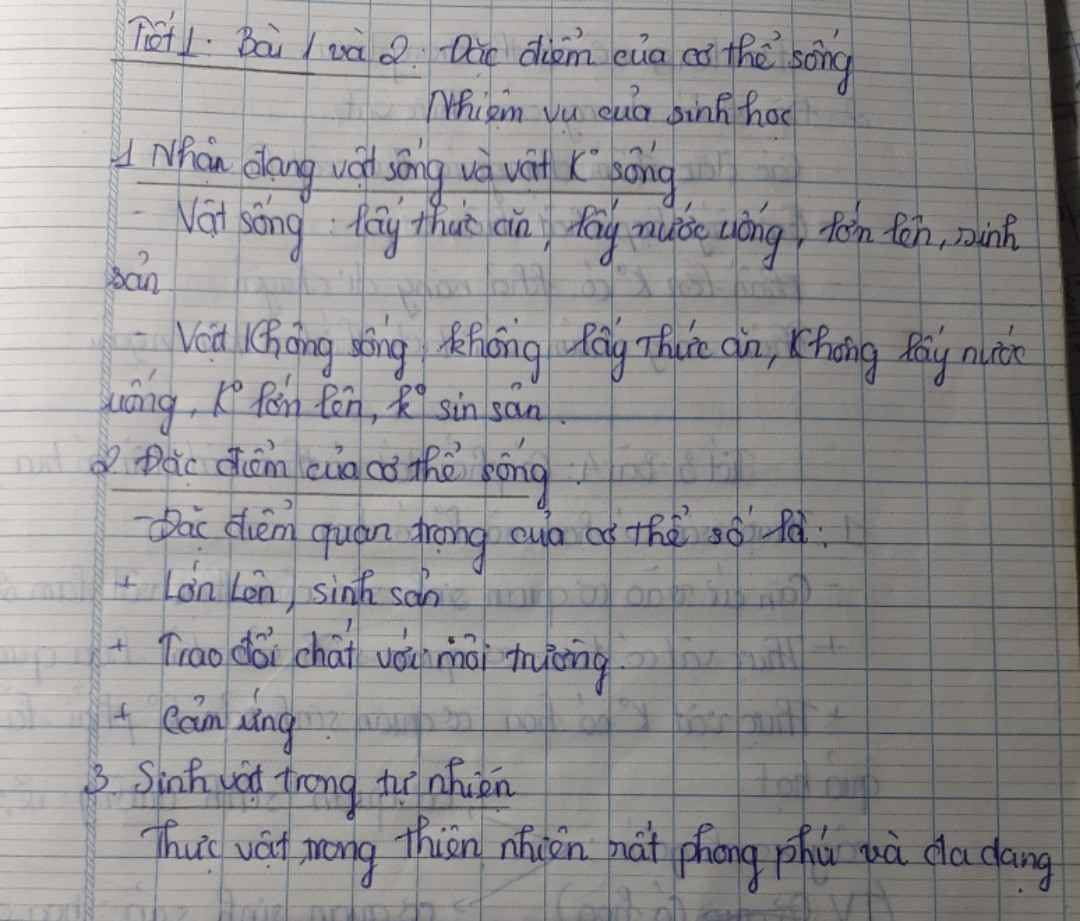 Tiết 1. Bài 1 và 2: Đặc điểm của cơ thể sống
Nhiệm vụ của sinh học
1 Nhận dạng vật sống và vật K° sống
- Vật sống : lấy thức ăn, lấy nước uống, lớn lên, sinh
sản
- Vật Không sống, không lấy thức ăn, Không lấy nước
uống, K° lớn lên, k° sin sản.
2. Đặc điểm của cơ thể sống.
- Đặc điểm quan trọng của cơ thể số là:
+ Lớn Lên, sinh sản
+ Trao đổi chất với môi trường.
+ Cảm ứng.
3. Sinh vật trong tự nhiên
Thực vật trong thiên nhiên rất phong phú và đa dạng